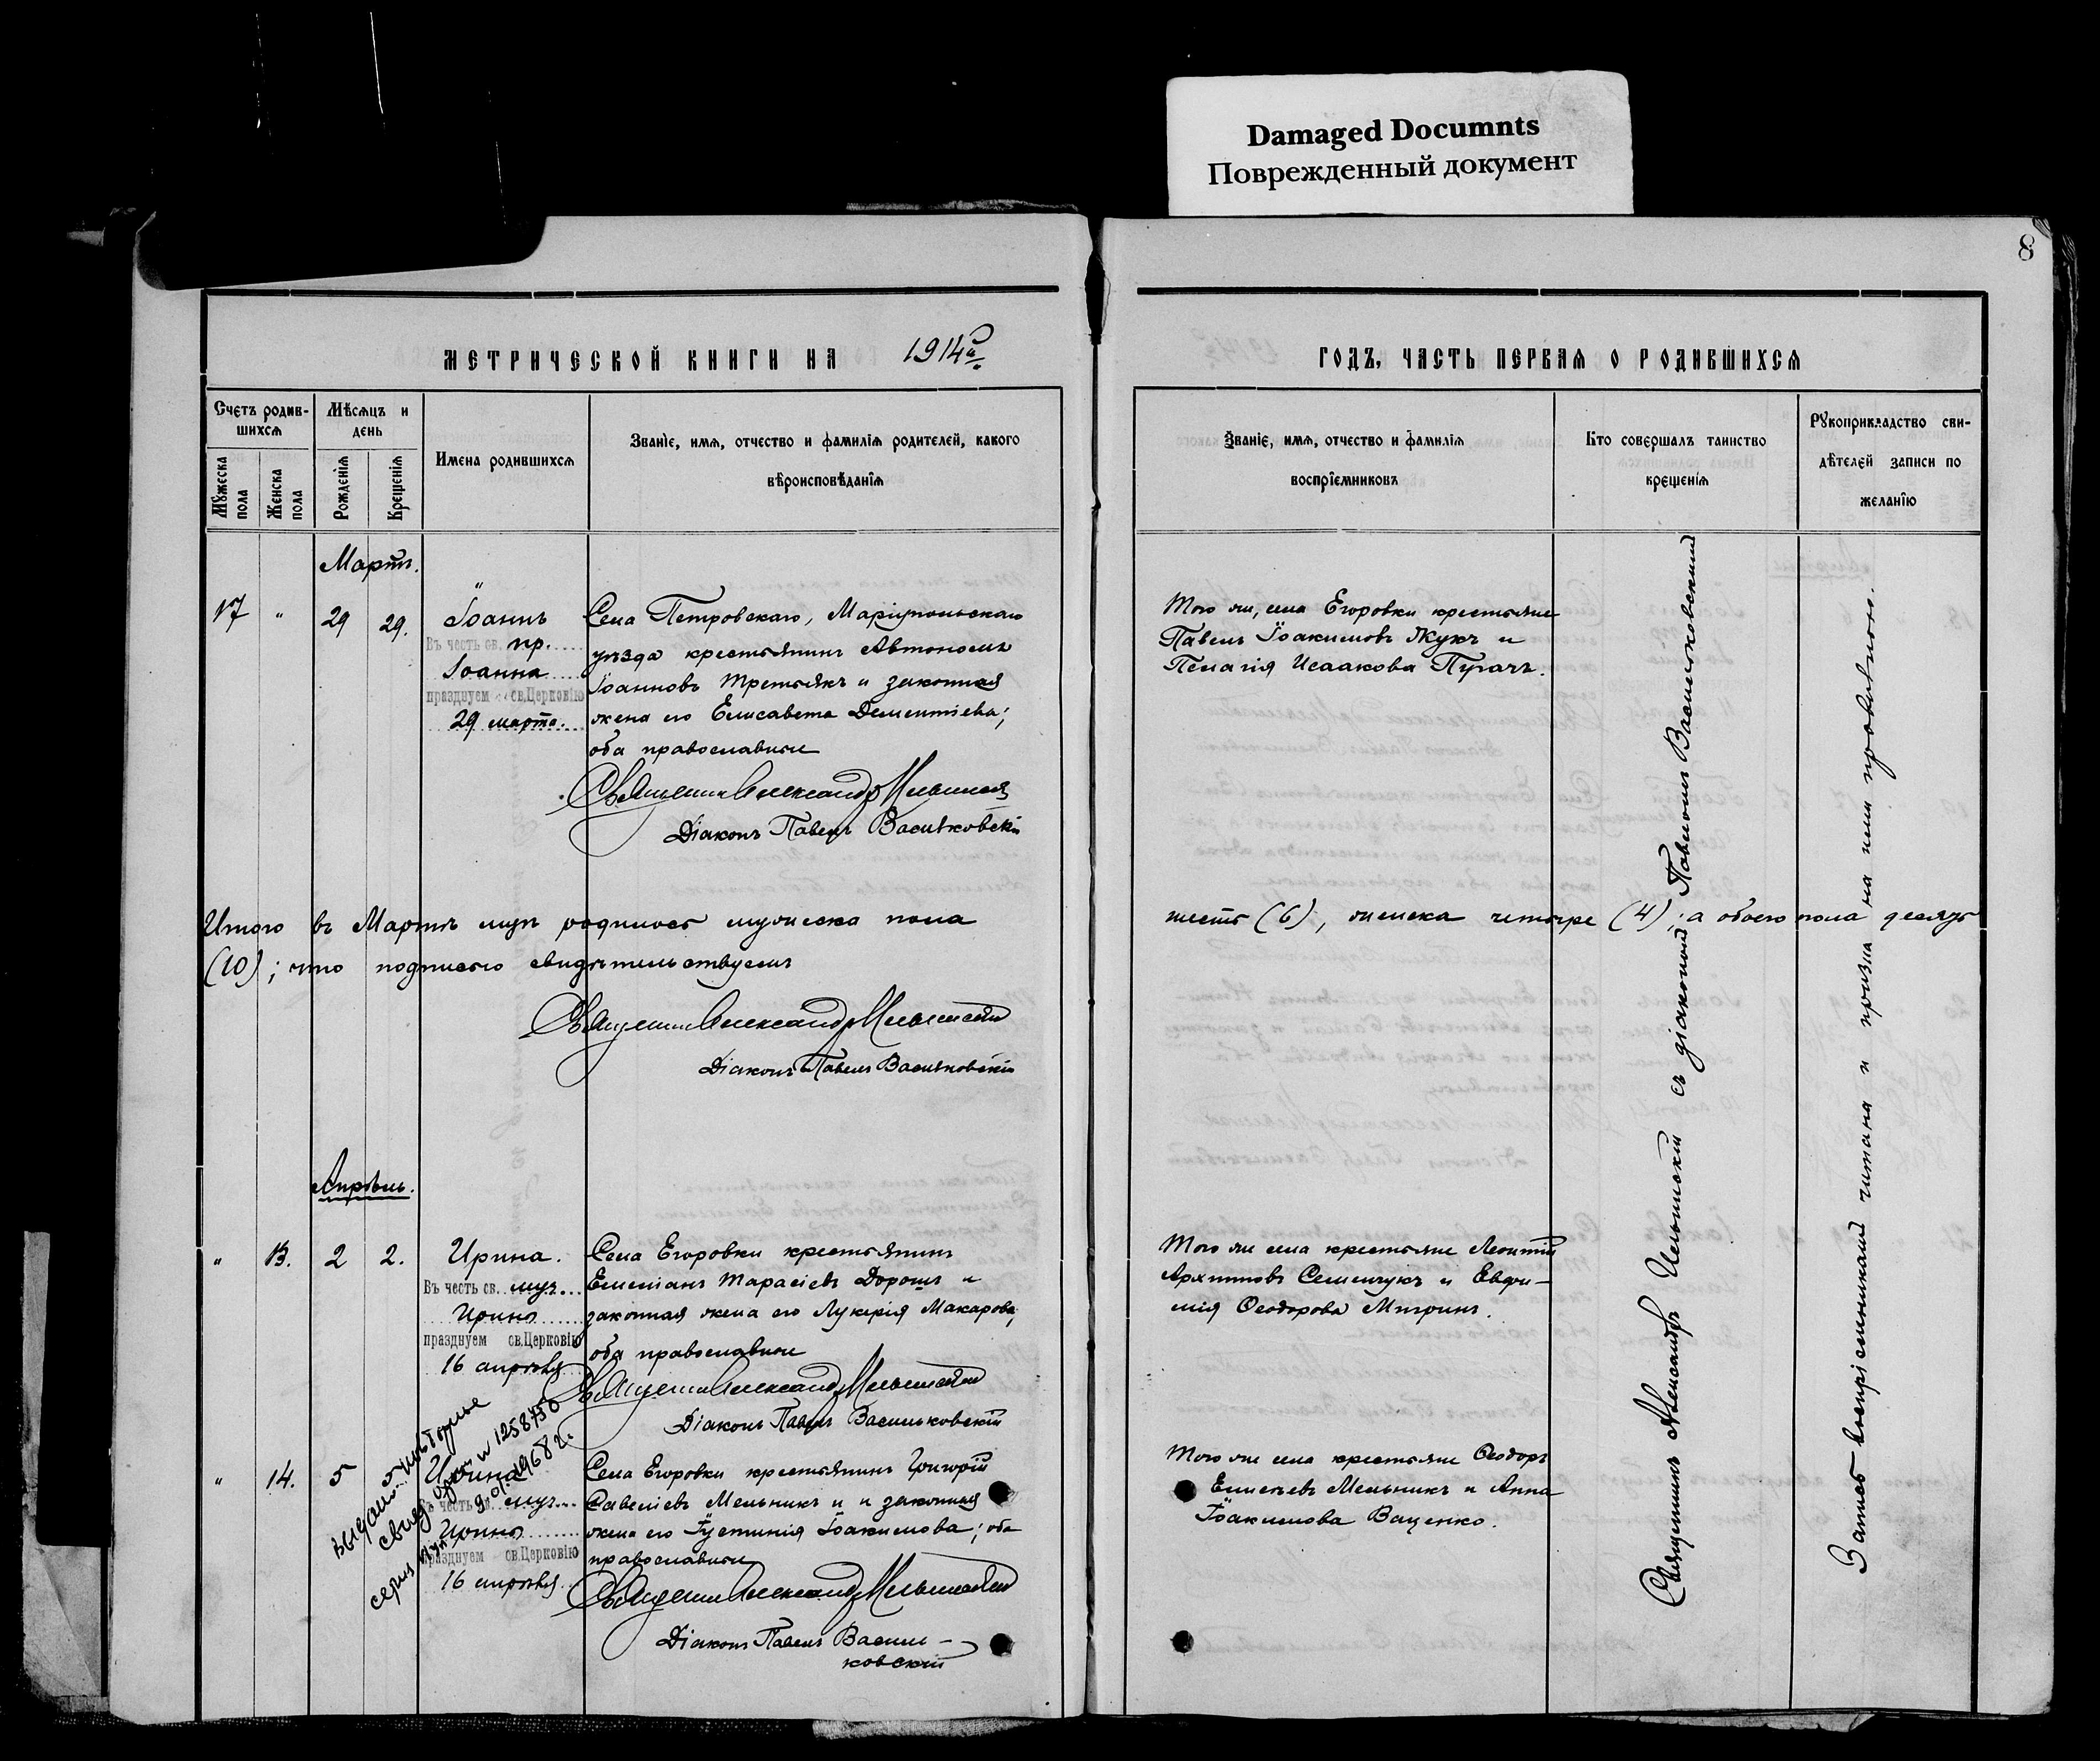 Damaged Documnts
Поврежденный документ
8
МЕТРИЧЕСКОЙ КНИГИ НА 1914й
Счетъ родив-
шихся
Мѣсяцъ и
день
Мужеска
пола
Женска
пола
Рожденія
Крещенія
Имена родившихся
Званіе, имя, отчество и фамилія родителей, какого
вѣроисповѣданія
Мартъ.
17 " 29 29.
Іоаннъ
Въ честь св. пр.
Іоанна
празднуем св.Церковію
29 марта.
Села Петровскаго, Маріупольскаго
уѣзда крестьянинъ Автономъ
Іоанновъ Третьякъ и законная
жена его Елисавета Дементіева;
оба православные
Священникъ Александр
Діаконъ Павелъ Васильковскій
Итого въ Мартѣ мцѣ родилось мужеска пола
(10); что подписью свидѣтельствуемъ
Священникъ Александр
Діаконъ Павелъ Васильковскій
Апрѣль.
" 13. 2 2.
Ирина.
Въ честь св. муч.
Ирины
празднуем св.Церковію
16 апрѣля
Села Егоровки крестьянинъ
Емеліанъ Тарасіевъ Дорошъ и
законная жена его Лукерія Макарова;
оба православные
Священникъ Александр
Діаконъ Павелъ Васильковскій
" 14. 5 5
Ирина
Въ честь св. муч.
Ирины
празднуем св.Церковію
16 апрѣля
Села Егоровки крестьянинъ Григорій
Савеліевъ Мельникъ и и законная
жена его Іустинія Іоакимова; оба
православные
Священникъ Александр
Діаконъ Павелъ Василь-
ковскій
выдано повторное
свид.
серия 1258750
9.01.1968 г.
ГОДЪ, ЧАСТЬ ПЕРВАЯ О РОДИВШИХСЯ
Званіе, имя, отчество и фамилія
воспріемниковъ
Кто совершалъ таинство
крещенія
Рукоприкладство сви-
дѣтелей записи по
желанію
Того же, села Егоровки крестьяне
Павелъ Іоакимовъ Жукъ и
Пелагія Исаакова Пугачъ.
шесть (6), женска четыре (4); а обоего пола десять
Того же села крестьяне Леонтій
Архиповъ Семенчукъ и Евфи-
мія Ѳеодорова
Того же села крестьяне Ѳеодоръ
Мельникъ и Анна
Іоакимова Ваценко.
Священникъ Александръ съ діакономъ Павломъ Васильковскимъ
Запись воспріемниками читана и признана ими правильною.